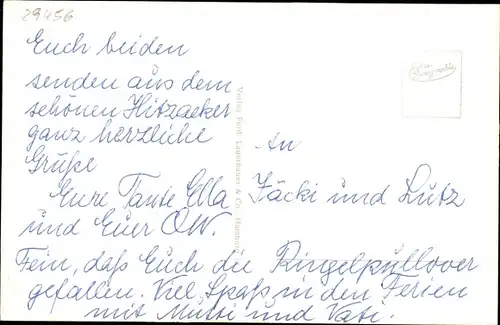 29456
Euch beiden
senden aus dem
schönen Hitzacker
ganz herzliche
Grüße
Eure Tante Ella
und Euer O.W.
An
Jäcki und Lutz
Fein, daß Euch die Ringelpullover
gefallen. Viel Spaß in den Ferien
mit Mutti und Vati.
Verlag Ferd. & Co.
Echte